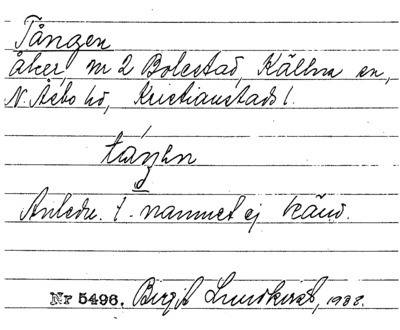 Tången
åker nr 2 Bolestad, Källna sn,
N. Åsbo hd, Kristianstads l.
tåŋen
Anledn. t. namnet ej känd.
Nr 5496. Birgit Lundkvist, 1938.